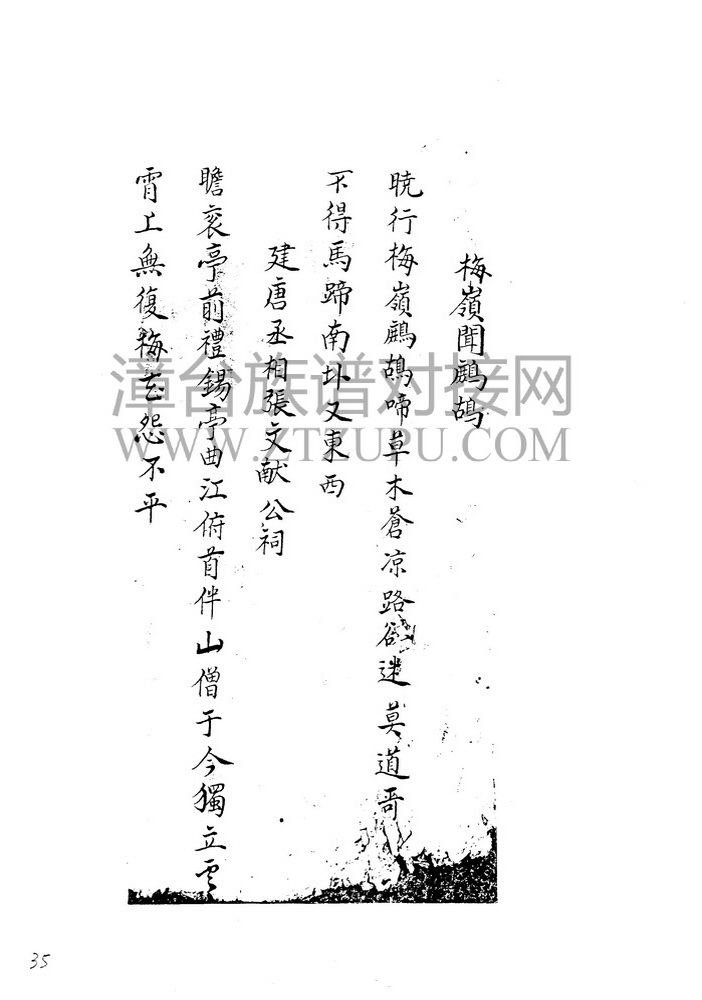 梅嶺聞鷓鴣
暁行梅嶺鷓鴣啼草木蒼凉路欲迷莫道哥
不得馬蹄南圤又東西
建唐丞相張文献公祠
瞻衮亭前禮錫亭曲江俯首伴山僧于今獨立雲
霄上無復梅花怨不平
漳台族谱对接网
WWW.ZTZUPU.COM
35